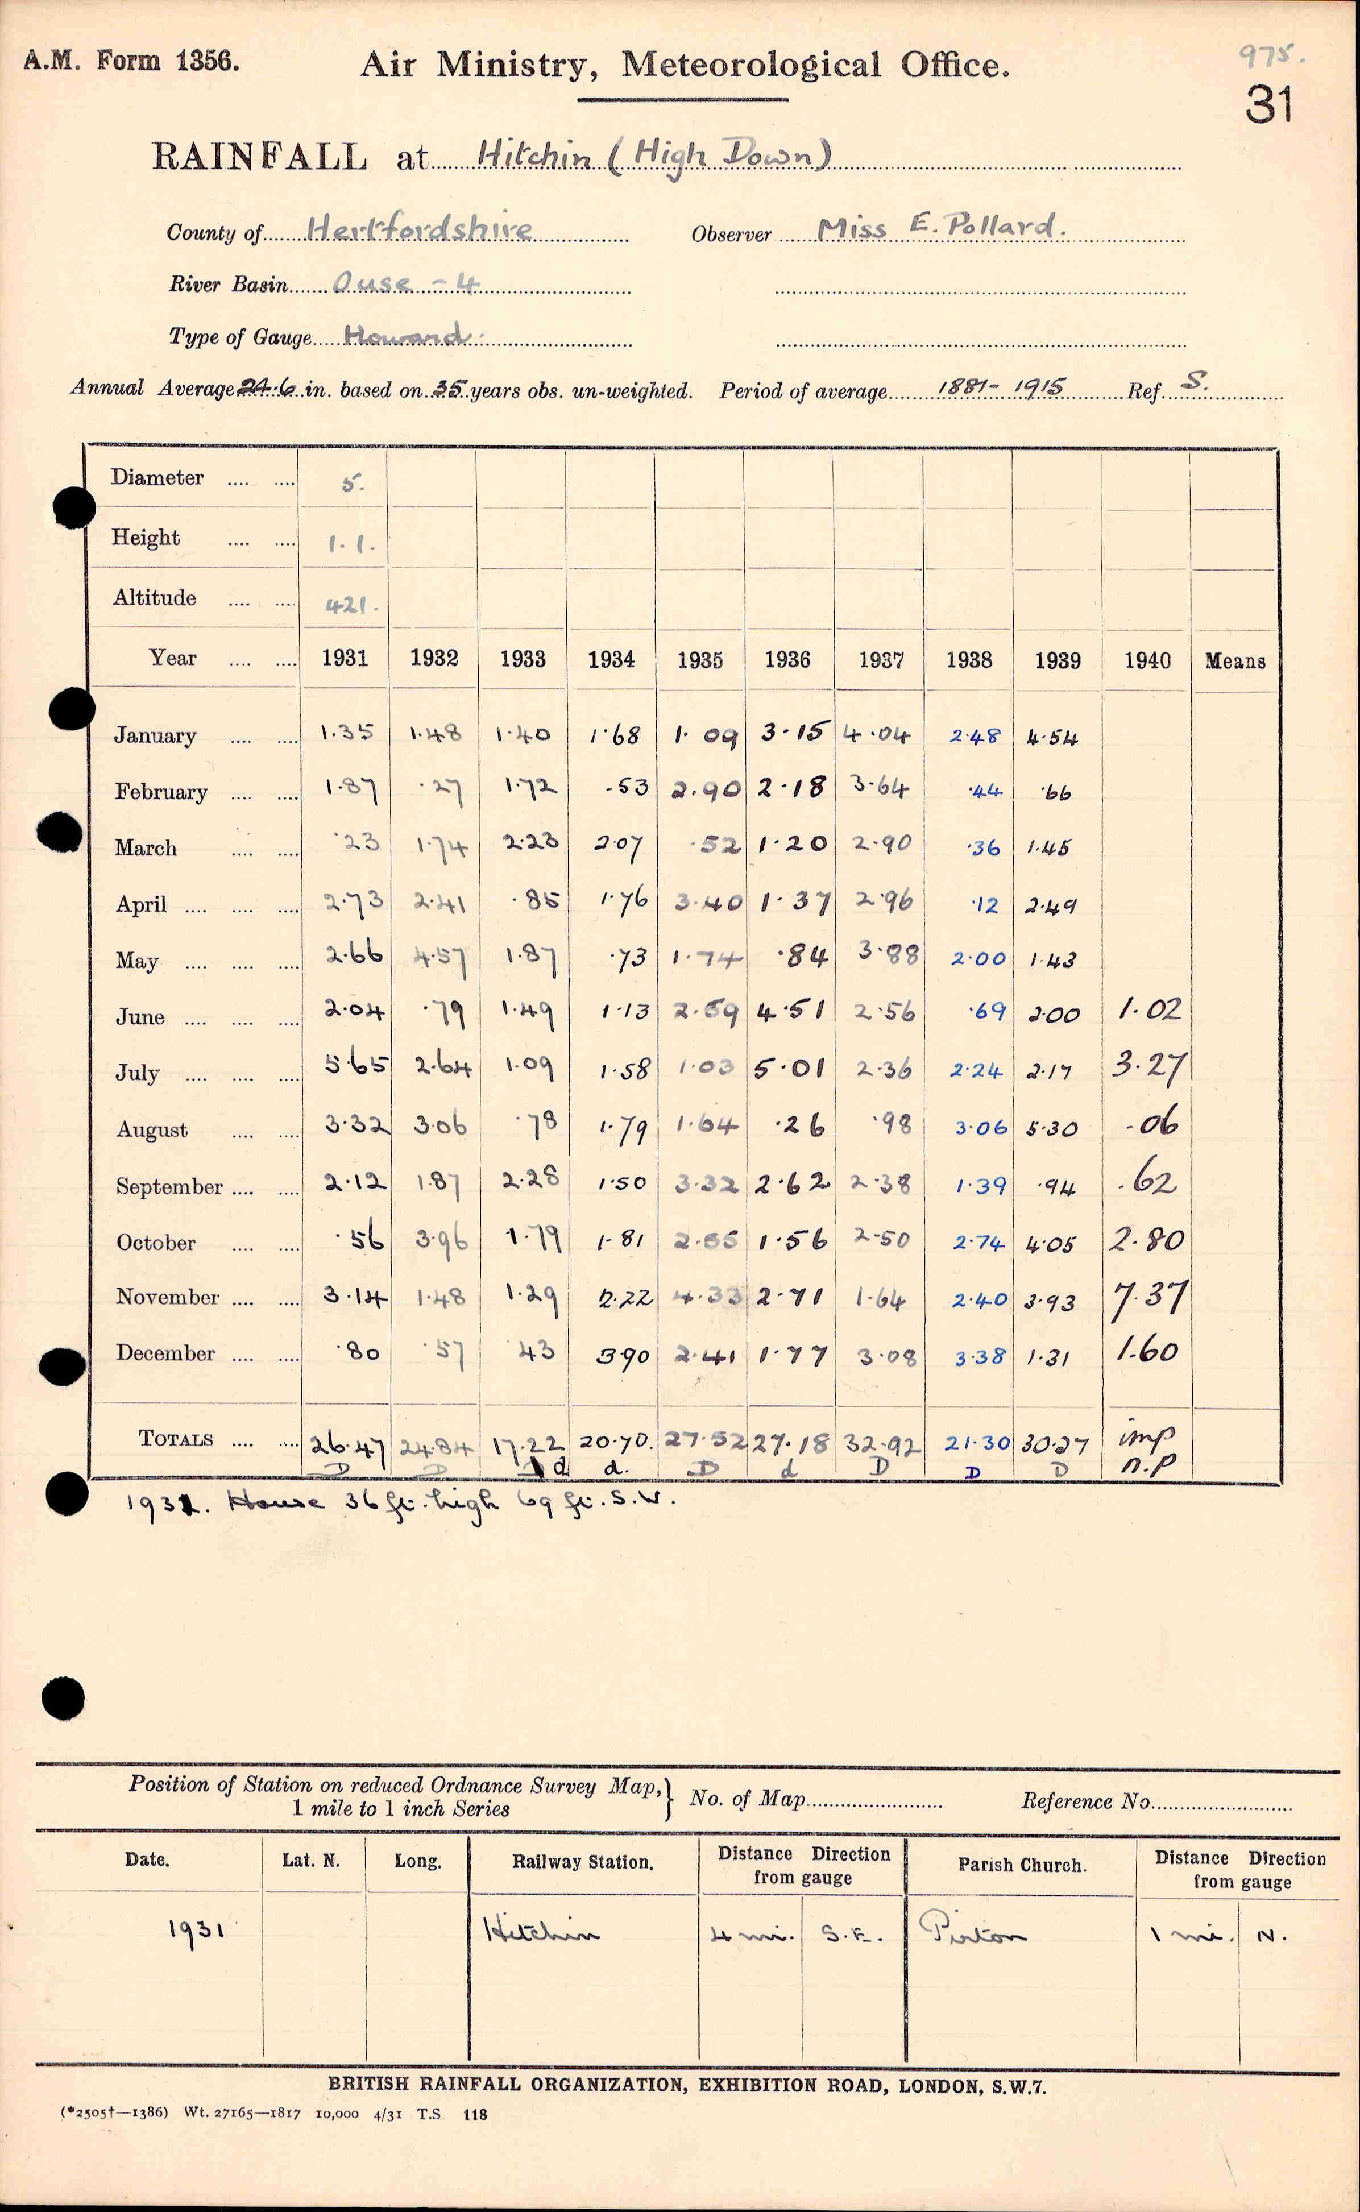 A.M. Form 1356.
Air Ministry, Meteorological Office.
975.
31
RAINFALL at Hitchin (High Down)
County of Hertfordshire Observer Miss E. Pollard.
River Basin Ouse - 4
Type of Gauge Howard
Annual Average 24.6 in. based on 35 years obs. un-weighted. Period of average 1881-1915 Ref. S.
Diameter 5.
Height 1.1.
Altitude 421.
Year 1931 1932 1933 1934 1935 1936 1937 1938 1939 1940 Means
January 1.35 1.48 1.40 1.68 1.09 3.15 4.04 2.48 4.54
February 1.87 .27 1.72 .53 2.90 2.18 3.64 .44 .66
March .23 1.74 2.23 2.07 .52 1.20 2.90 .36 1.45
April 2.73 2.41 .85 1.76 3.40 1.37 2.96 .12 2.49
May 2.66 4.57 1.87 .73 1.74 .84 3.88 2.00 1.43
June 2.04 .79 1.49 1.13 2.59 4.51 2.56 .69 2.00 1.02
July 5.65 2.64 1.09 1.58 1.03 5.01 2.36 2.24 2.17 3.27
August 3.32 3.06 .78 1.79 1.64 .26 .98 3.06 5.30 .06
September 2.12 1.87 2.28 1.50 3.32 2.62 2.38 1.39 .94 .62
October .56 3.96 1.79 1.81 2.55 1.56 2.50 2.74 4.05 2.80
November 3.14 1.48 1.29 2.22 4.33 2.71 1.64 2.40 3.93 7.37
December .80 .57 43 3.90 2.41 1.77 3.08 3.38 1.31 1.60
TOTALS 26.47 24.84 17.22 20.70. 27.52 27.18 32.92 21.30 30.27 imp
D D d d. D d D D D n.p
1931. House 36 ft. high 69 ft. S.W.
Position of Station on reduced Ordnance Survey Map,
1 mile to 1 inch Series
No. of Map Reference No.
Date. Lat. N. Long. Railway Station. Distance Direction from gauge Parish Church. Distance Direction from gauge
1931 Hitchin 4 mi. S.E. Pirton 1 mi. N.
BRITISH RAINFALL ORGANIZATION, EXHIBITION ROAD, LONDON, S.W.7.
(*2505†—1386) Wt. 27165—1817 10,000 4/31 T.S. 118